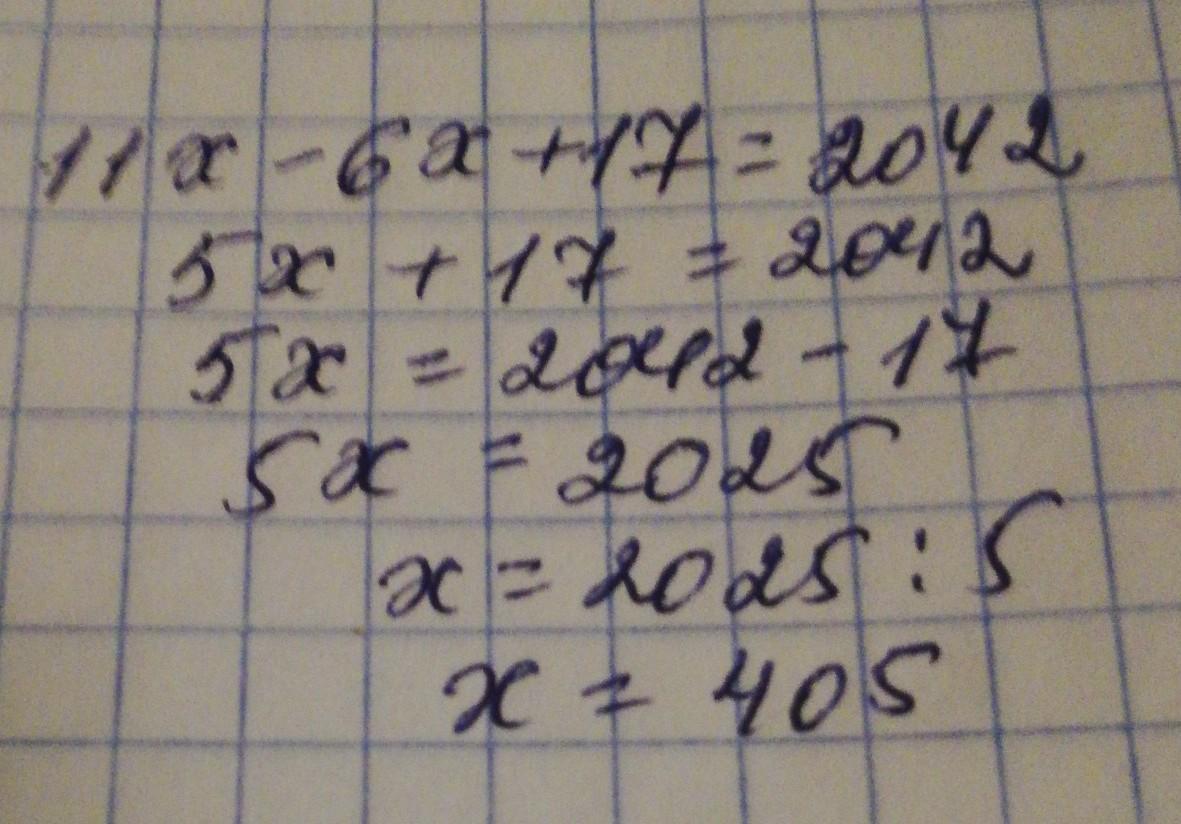 11x - 6x + 17 = 2042
5x + 17 = 2042
5x = 2042 - 17
5x = 2025
x = 2025 : 5
x = 405